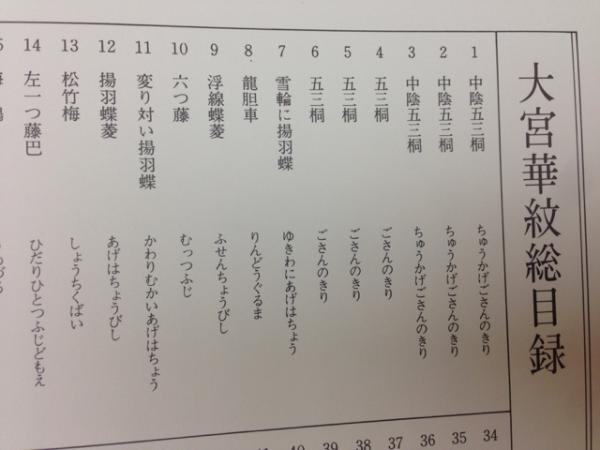 大宮華紋総目録
1 中陰五三桐 ちゅうかげごさんのきり
2 中陰五三桐 ちゅうかげごさんのきり
3 中陰五三桐 ちゅうかげごさんのきり
4 五三桐 ごさんのきり
5 五三桐 ごさんのきり
6 五三桐 ごさんのきり
7 雪輪に揚羽蝶 ゆきわにあげはちょう
8 龍胆車 りんどうぐるま
9 浮線蝶菱 ふせんちょうびし
10 六つ藤 むっつふじ
11 変り対い揚羽蝶 かわりむかいあげはちょう
12 揚羽蝶菱 あげはちょうびし
13 松竹梅 しょうちくばい
14 左一つ藤巴 ひだりひとつふじどもえ
34
35
36
37
38
39